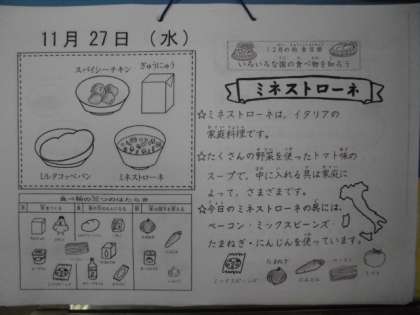 11月27日 (水)
スパイシーチキン
ぎゅうにゅう
ミルクコッペパン
ミネストローネ
いろいろな国の食べ物を知ろう
ミネストローネ
☆ミネストローネは、イタリアの
家庭料理です。
☆たくさんの野菜を使ったトマト味の
スープで、中に入れる具は家庭に
よって、さまざまです。
☆今日のミネストローネの具には、
ベーコン・ミックスビーンズ・
たまねぎ・にんじんを使っています。
食べ物の三つのはたらき
ミックスビーンズ
たまねぎ
にんじん
ベーコン
トマト